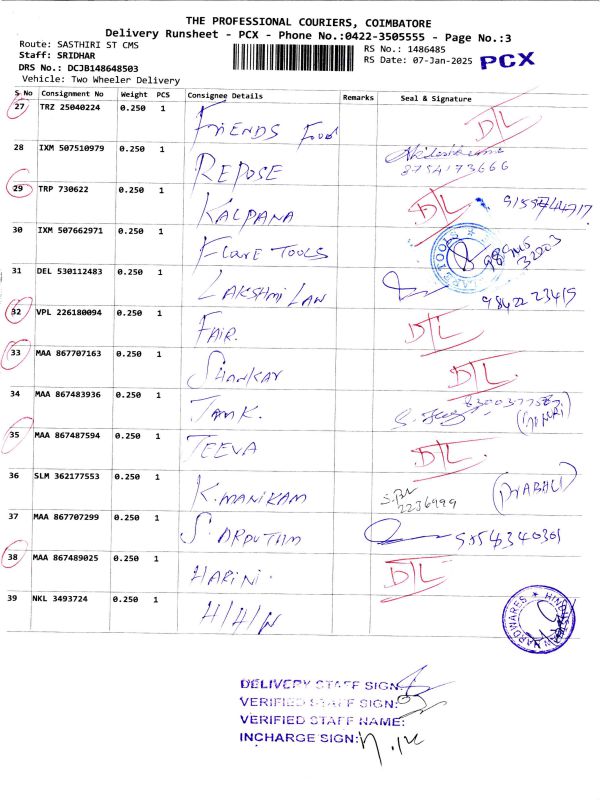 THE PROFESSIONAL COURIERS, COIMBATORE
Delivery Runsheet - PCX - Phone No.:0422-3505555 - Page No.:3
Route: SASTHIRI ST CMS
Staff: SRIDHAR
DRS No.: DCJB148648503
Vehicle: Two Wheeler Delivery
RS No.: 1486485
RS Date: 07-Jan-2025 PCX
S No Consignment No Weight PCS Consignee Details Remarks Seal & Signature
27 TRZ 25040224 0.250 1 FRIENDS FOOD D/L
28 IXM 507510979 0.250 1 REPOSE
8754173666
29 TRP 730622 0.250 1 KALPANA D/L
30 IXM 507662971 0.250 1 Flare TOOLS
31 DEL 530112483 0.250 1 LAKSHMI LAW 98422 23415
32 VPL 226180094 0.250 1 FAIR. D/L
33 MAA 867707163 0.250 1 SHANKAR D/L
34 MAA 867483936 0.250 1
35 MAA 867487594 0.250 1 JEEVA D/L
36 SLM 362177553 0.250 1 K.MANIKAM
2236999
37 MAA 867707299 0.250 1
38 MAA 867489025 0.250 1 HARINI. D/L
39 NKL 3493724 0.250 1 H/H/W
DELIVERY STAFF SIGN:
VERIFIED STAFF SIGN:
VERIFIED STAFF NAME:
INCHARGE SIGN: